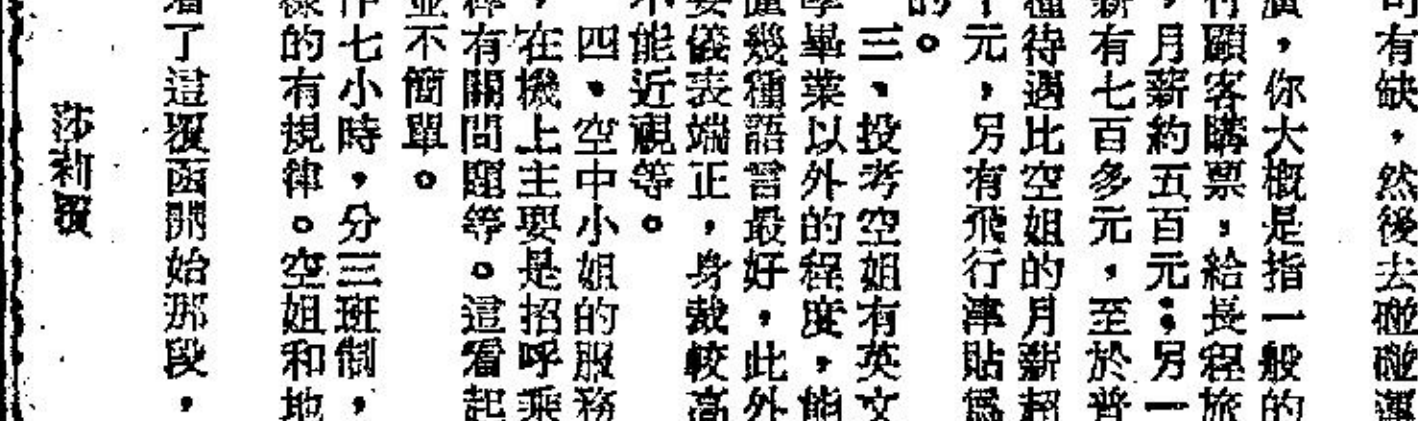 有缺，然後去碰碰運
，你大概是指一般的
顧客購票，給長程旅
，月薪約五百元；另一
薪有七百多元，至於普
種待遇比空姐的月薪超
元，另有飛行津貼爲
的。
三、投考空姐有英文
畢業以外的程度，能
幾種語言最好，此外
儀表端正，身裁較高
不能近視等。
四、空中小姐的服務
，在機上主要是招呼乘
有關問題等。這看起
並不簡單。
作七小時，分三班制，
樣的有規律。空姐和地
看了這覆函開始那段，
莎莉覆